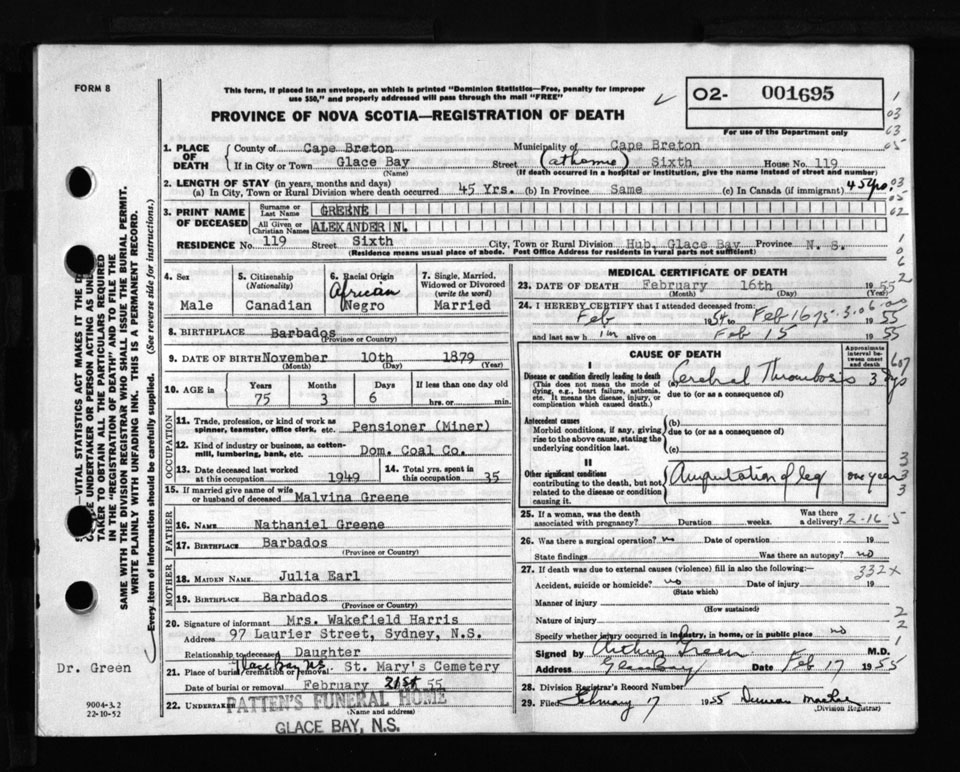 FORM 8
This form, if placed in an envelope, on which is printed "Dominion Statistics—Free, penalty for improper
use $50," and properly addressed will pass through the mail "FREE"
PROVINCE OF NOVA SCOTIA—REGISTRATION OF DEATH
O2- 001695
For use of the Department only
1. PLACE OF DEATH County of Cape Breton Municipality of Cape Breton
If in City or Town Glace Bay Street (at home) Sixth House No. 119
(Name) (If death occurred in a hospital or institution, give the name instead of street and number)
2. LENGTH OF STAY (in years, months and days)
(a) In City, Town or Rural Division where death occurred 45 Yrs. (b) In Province Same (c) In Canada (if immigrant) 45 yrs.
3. PRINT NAME OF DECEASED
Surname or Last Name GREENE
All Given or Christian Names ALEXANDER N.
RESIDENCE No. 119 Street Sixth City, Town or Rural Division Hub, Glace Bay Province N. S.
(Residence means usual place of abode. Post Office Address for residents in rural parts not sufficient)
4. Sex
Male
5. Citizenship
(Nationality)
Canadian
6. Racial Origin
African
Negro
7. Single, Married,
Widowed or Divorced
(write the word)
Married
8. BIRTHPLACE Barbados
(Province or Country)
9. DATE OF BIRTH November 10th 1879
(Month) (Day) (Year)
10. AGE in Years Months Days If less than one day old
75 3 6 hrs. or min.
OCCUPATION
11. Trade, profession, or kind of work as
spinner, teamster, office clerk, etc. Pensioner (Miner)
12. Kind of industry or business, as cotton-
mill, lumbering, bank, etc. Dom. Coal Co.
13. Date deceased last worked
at this occupation 1949
14. Total yrs. spent in
this occupation 35
15. If married give name of wife
or husband of deceased Malvina Greene
FATHER
16. NAME Nathaniel Greene
17. BIRTHPLACE Barbados
(Province or Country)
MOTHER
18. MAIDEN NAME Julia Earl
19. BIRTHPLACE Barbados
(Province or Country)
20. Signature of informant Mrs. Wakefield Harris
Address 97 Laurier Street, Sydney, N.S.
Relationship to deceased Daughter
21. Place of burial, cremation or removal Glace Bay N.S. St. Mary's Cemetery
Date of burial or removal February 21st 55
22. UNDERTAKER PATTEN'S FUNERAL HOME
(Name and address)
GLACE BAY, N.S.
MEDICAL CERTIFICATE OF DEATH
23. DATE OF DEATH February 16th 1955
(Month) (Day) (Year)
24. I HEREBY CERTIFY that I attended deceased from:
Feb 1954 to Feb 16 1955
and last saw him alive on Feb 15 1955
CAUSE OF DEATH
Approximate
interval be-
tween onset
and death
I
Disease or condition directly leading to death
(This does not mean the mode of
dying, e.g., heart failure, asthenia,
etc. It means the disease, injury, or
complication which caused death.)
(a) Cerebral Thrombosis 3 dys
due to (or as a consequence of)
Antecedent causes
Morbid conditions, if any, giving
rise to the above cause, stating the
underlying condition last.
(b)
due to (or as a consequence of)
(c)
II
Other significant conditions
contributing to the death, but not
related to the disease or condition
causing it.
Amputation of leg one year
25. If a woman, was the death
associated with pregnancy? Duration weeks. Was there
a delivery?
2-16-5
26. Was there a surgical operation? no Date of operation 19
State findings Was there an autopsy? no
27. If death was due to external causes (violence) fill in also the following: 332x
Accident, suicide or homicide? no Date of injury 19
(State which)
Manner of injury
(How sustained)
Nature of injury
Specify whether injury occurred in industry, in home, or in public place no
Signed by Arthur Green M.D.
Address Glace Bay Date Feb 17 1955
28. Division Registrar's Record Number
29. Filed February 17 1955 Duncan
(Division Registrar)
VITAL STATISTICS ACT MAKES IT THE
UNDERTAKER OR PERSON ACTING AS
TAKER TO OBTAIN ALL THE PARTICULARS REQUIRED
IN THE "REGISTRATION OF DEATH" AND TO FILE THE
SAME WITH THE DIVISION REGISTRAR WHO SHALL ISSUE THE BURIAL PERMIT.
WRITE PLAINLY WITH UNFADING INK. THIS IS A PERMANENT RECORD.
Every item of information should be carefully supplied. (See reverse side for instructions.)
Dr. Green
9004-3.2
22-10-52